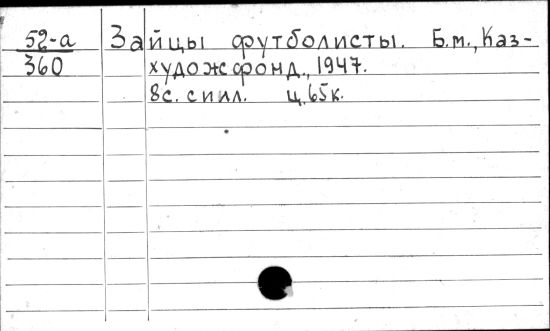 52-а Зайцы футболисты. Б.м., Каз-
360 худож фонд., 1947.
8с. с илл. ц. 65к.